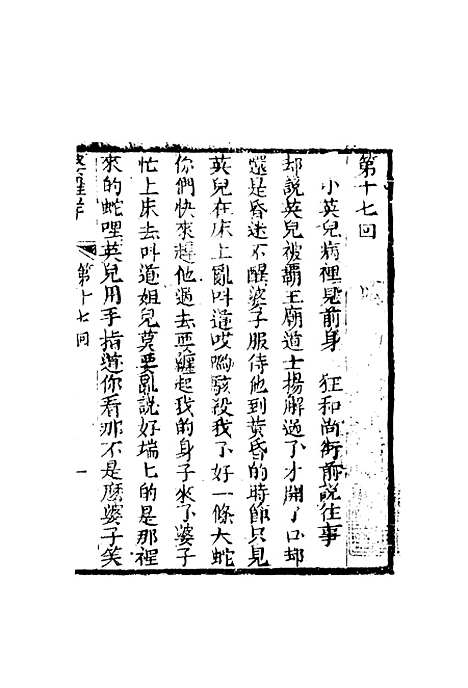 第十七回
小英兒病裡見前身　狂和尚衙前説往事
却説英兒被覇王廟道士楊解過了才開了口却
還是昏迷不醒婆子服侍他到黄昏的時節只見
英兒在床上亂叫道哎喲駭殺我了好一條大蛇
你們快來趕他過去要纏起我的身子來了婆子
忙上床去叫道姐兒莫要亂説好端上的是那裡
來的蛇哩英兒用手指道你看那不是麽婆子笑
第十七回　一